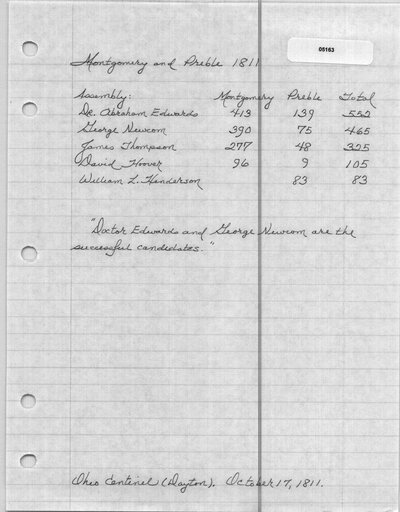 05163
Montgomery and Preble 1811
Assembly: Montgomery Preble Total
Dr. Abraham Edwards 413 139 552
George Newcom 390 75 465
James Thompson 277 48 325
David Hoover 96 9 105
William L. Henderson 83 83
"Doctor Edwards and George Newcom are the
successful candidates."
Ohio Centinel (Dayton). October 17, 1811.